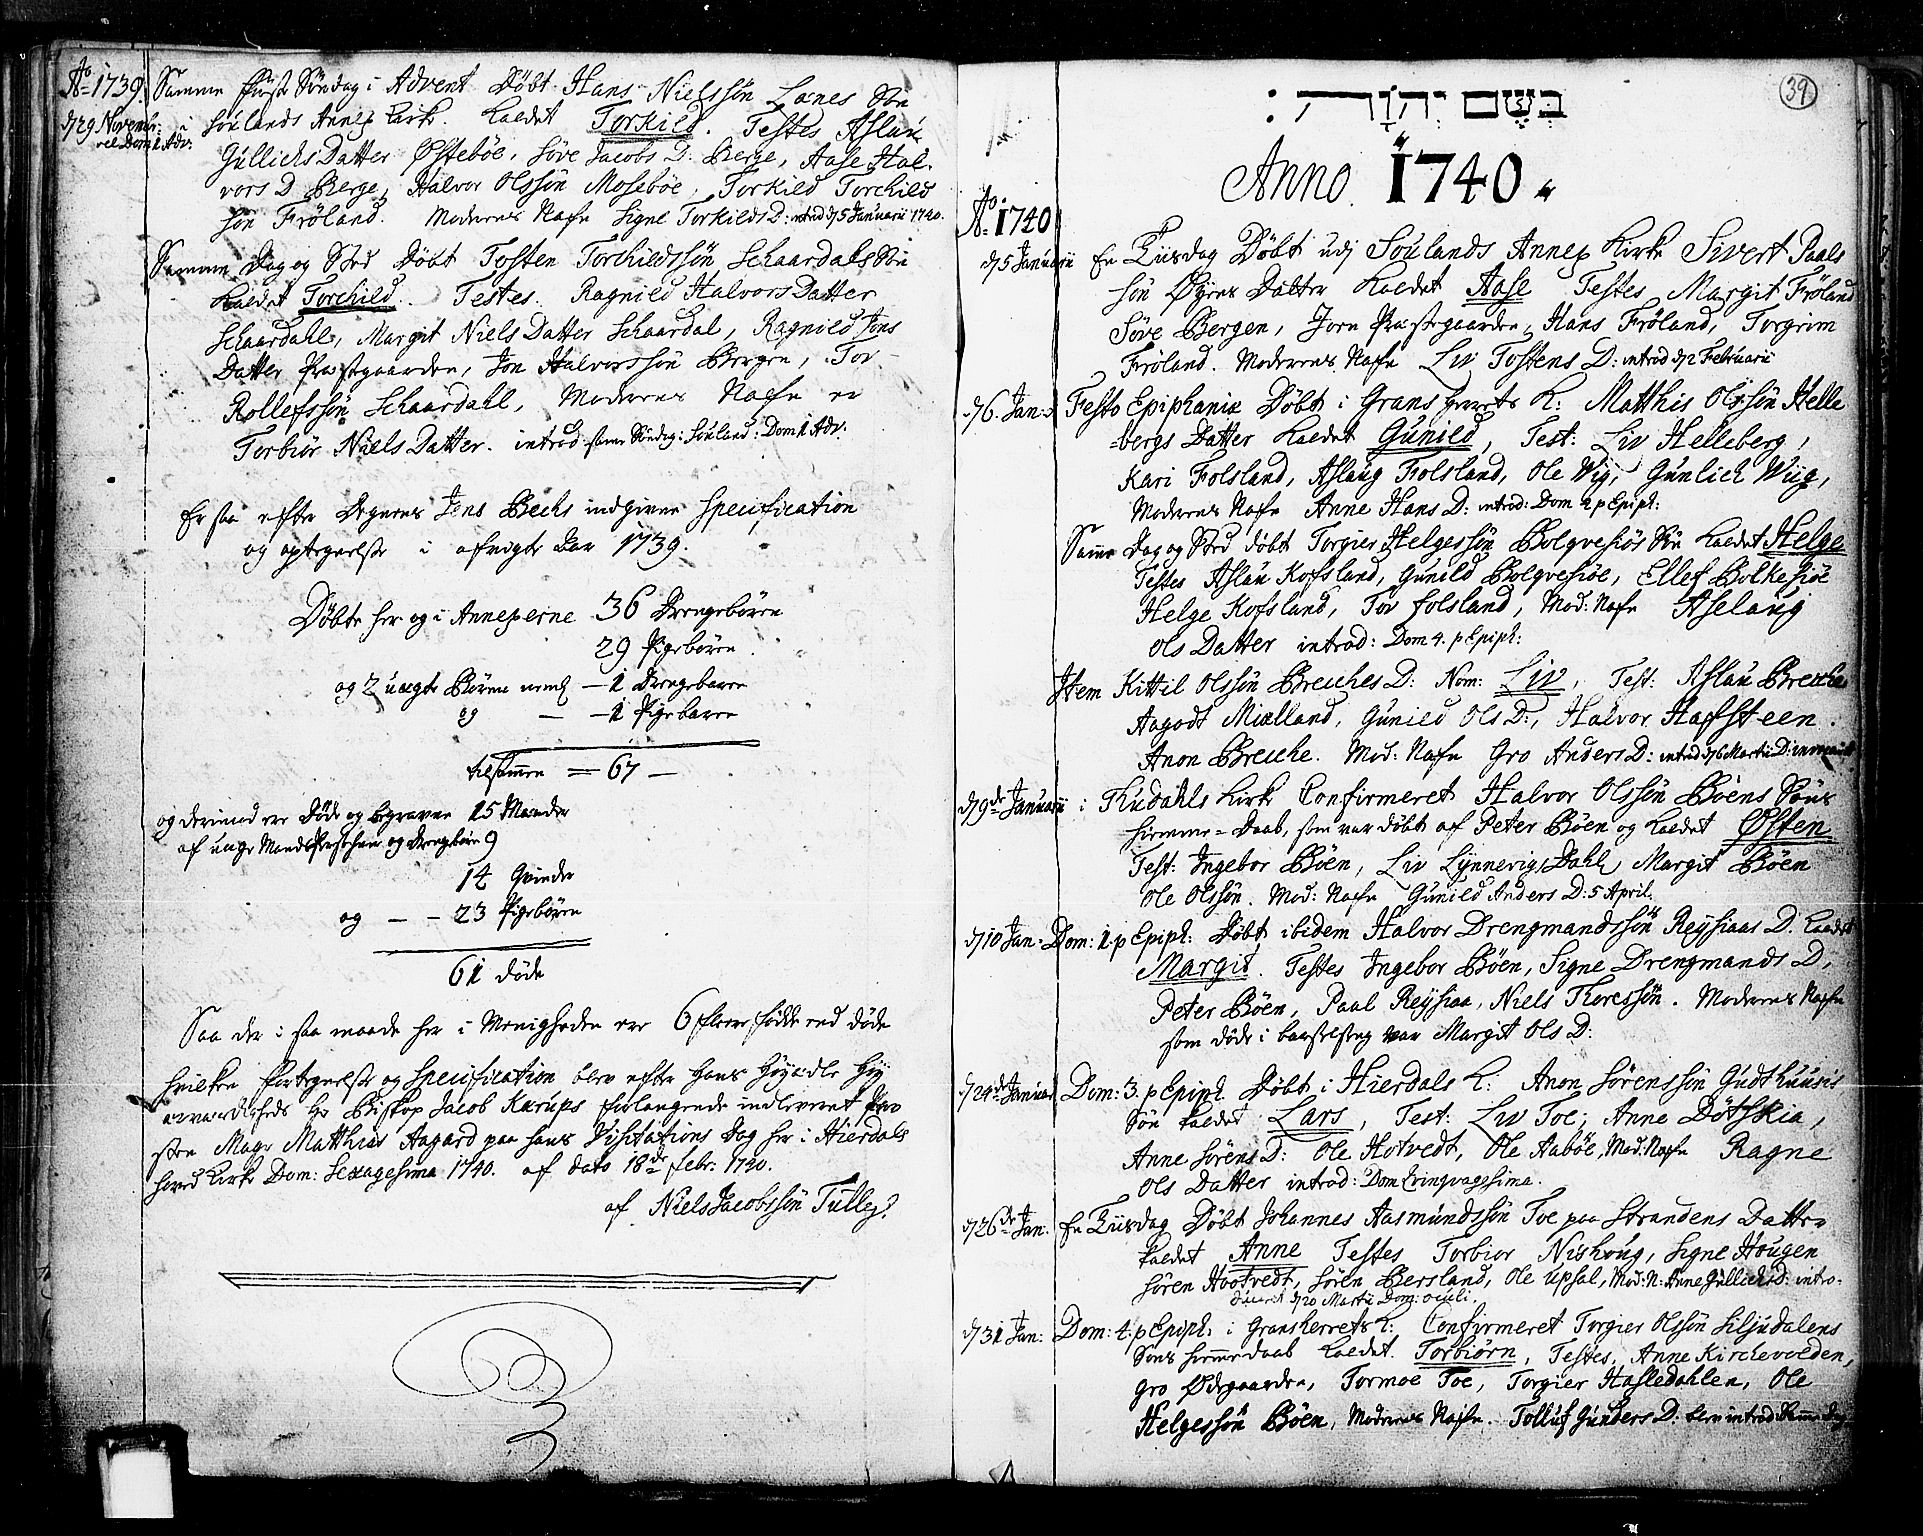 Ao 1739.
d. 29 Novembr:
vel Dom 1 Adv:
Samme første Søndag i Advent Døbt Hans Nielssøn Lønes Søn
Soulands Annex Kirke. kaldet Torkild. Testes Aslau
Gullichs Datter Østebøe, Søve Jacobs D: Berge, Aase Hal-
vors D Berge, Halvor Olssøn Mosebøe, Torkild Torchild
søn Frøland. Moderens Nafn Signe Torkilds D: introd d 5 Januarii 1740.
Samme Dag og Sted Døbt Tosten Torchildssøn Schaardals Søn
kaldet Torchild. Testes. Ragnild Halvors Datter
Schaardahl, Margit Niels Datter Schaardal, Ragnild Jens
Datter Præstgaarden, Jon Halvorssøn Bergen, Tor-
Rollefssøn Schaardahl, Moderens Nafn er
Torbiør Niels Datter. introd. samme Søndag: Souland: Dom 1 Adv.
Er saa efter Degnens Jens Bechs indgivne Specification
og optegnelse i afvigte Aar 1739.
Døbte her og i Annexerne 36 Drengebørn
29 Pigebørn
og 2 uægte Børn neml – 1 Drengebarn
og – – 1 Pigebarn
tilsammen = 67 –
og derimod ere Døde og begravne 15 Mænder
af unge Mands Personer og Drengebørn 9
14 Qvinder
og – – 23 Pigebørn
61 døde
Saa der i saa maade her i Menigheden ere 6 fleere fødde end døde
hvilken fortegnelse og Specification blev efter Hans Høyædle Høy
ærværdigheds Hr Biskop Jacob Kærups forlangende indleveret Prov
sten Magr Matthias Aagard paa hans Visitations Dag her i Hierdals
hoved Kirke Dom: Sexagesima 1740. af dato 18de febr. 1740.
af Niels Jacobssøn Tullej.
39
בְּשֵׁם יְהוָֹה :
Anno. 1740.
Ao 1740
d 5 Januarii En Tiisdag Døbt udj Soulands Annex Kirke Sivert Paals
søn Øyres Datter kaldet Aase Testes Margit Frøland
Søve Bergen, Jorn Præstegaarden, Hans Frøland, Torgrim
Frøland. Moderens Nafn Liv Tostens D: introd d 2 Februarii
d 6. Jan: Festo Epiphaniæ Døbt i Gransherrets K: Matthis Olssøn Helle
-bergs Datter kaldet Gunild, Test: Liv Helleberg,
Kari Folsland, Aslaug Folsland, Ole Wiig, Gunlich Wiig,
Moderens Nafn Anne Hans D: introd: Dom 4 p Epiph:
Samme Dag og Sted døbt Torgier Helgessøn Bolqvesiøs Søn kaldet Helge
Testes Aslau Kofsland, Gunild Bolqvesiøe, Ellef Bolkesiøe
Helge Kofsland, Tov Folsland, Mod: Nafn Aslaug
Ols Datter introd: Dom 4. p Epiph:
Item Kittil Olssøn Breiches D: Nom: Liv, Test: Aslau Breiche
Aagodt Mielland, Gunild Ols D:, Halvor Hafsteen.
Anon Breiche. Mod: Nafn Gro Anders D: introd d 6 Martii D: invocavit
d 9de Januarii i Thudahls Kirke Confirmeret Halvor Olssøn Bøens Søns
hiemme-Daab, som var døbt af Peter Bøen og kaldet Østen
Test: Ingebor Bøen, Liv Lynnevigs Dahl, Margit Bøen
Ole Olssøn. Mod: Nafn Gunild Anders D: 5 April.
d 10 Jan. Dom: 1. p Epiph: Døbt ibidem Halvor Drengmandssøn Reysiaas D: kaldet
Margit. Testes Ingebor Bøen, Signe Drengmands D,
Peter Bøen, Paal Reysiaa, Niels Thoressøn. Moderens Nafn
som døde i barselseng var Margit Ols D:
d 24de Januar Dom: 3. p Epiph Døbt i Hierdals K: Anon Sørenssøn Gudthuusis
Søn kaldet Lars, Test: Liv Toe, Anne Døtskia,
Anne Sørens D: Ole Hotvedt, Ole Aabøe, Mod: Nafn Ragne
Ols Datter introd: Dom Qvinqvagesima.
d 26de Jan. En Tiisdag Døbt Johannes Aasmundssøn Toe paa Strandens Datter
kaldet Anne Testes Torbior Nishoug, Signe Hougen
Søren Hootvedt, Søren Bersland, Ole Upsal, Mod: N: Anne Gullichs D: intro-
duceret d 20 Martii Dom: oculi.
d 31 Jan: Dom: 4. p Epiph. i Gransherrets K: Confirmeret Torgier Olssøn Siljudalens
Søns hiemmedaab kaldet. Torbiørn, Testes, Anne Kirchevolden,
Gro Ødegaarden, Tormoe Toe, Torgier Hasledahlen, Ole
Helgessøn Bøen, Moderens Nafn. Tolluf Gunders D: blev introd Samme Dag